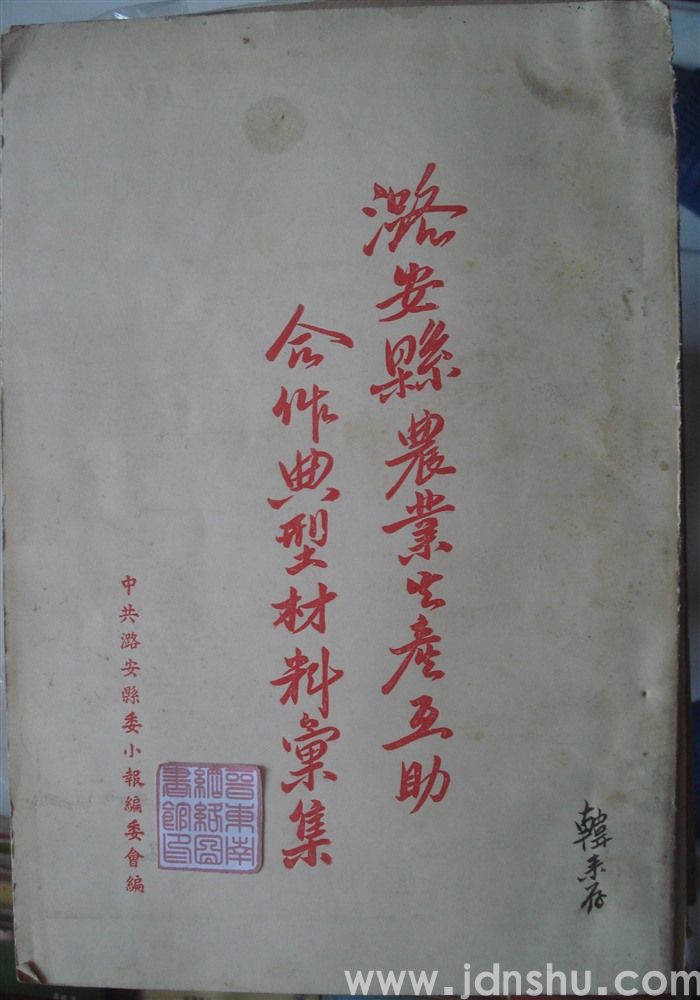 潞安縣農業生產互助
合作典型材料彙集
中共潞安縣委小報編委會編
晉東南
書館
www.jdnshu.com